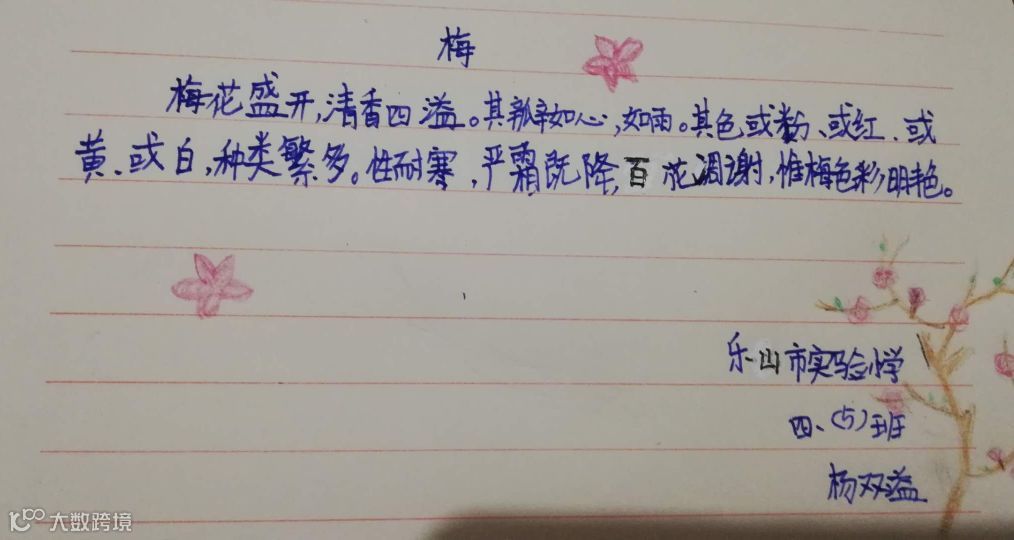 梅
梅花盛开,清香四溢。其瓣如心,如雨。其色或粉、或红、或
黄、或白,种类繁多。性耐寒,严霜既降,百花凋谢,惟梅色彩明艳。
乐山市实验小学
四、(5)班
杨双溢
大数跨境